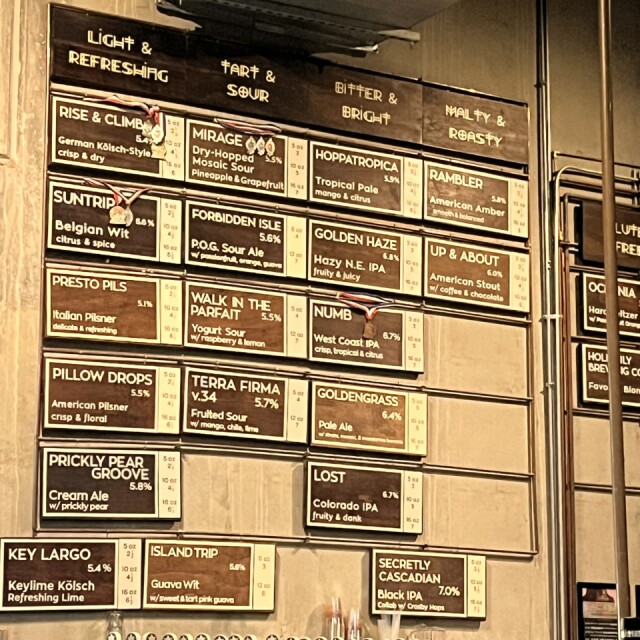 LIGHT &
REFRESHING
TART &
SOUR
BITTER &
BRIGHT
MALTY &
ROASTY
RISE & CLIMB
German Kölsch-Style
crisp & dry
SUNTRIP
6.6%
Belgian Wit
citrus & spice
PRESTO PILS
5.1%
Italian Pilsner
delicate & refreshing
PILLOW DROPS
5.5%
American Pilsner
crisp & floral
PRICKLY PEAR
GROOVE
5.8%
Cream Ale
w/ prickly pear
KEY LARGO
5.4%
Keylime Kölsch
Refreshing Lime
5 oz
10 oz
16 oz
MIRAGE
5.5%
Dry-Hopped
Mosaic Sour
Pineapple & Grapefruit
FORBIDDEN ISLE
5.6%
P.O.G. Sour Ale
w/ passionfruit, orange, guava
WALK IN THE
PARFAIT 5.5%
Yogurt Sour
w/ raspberry & lemon
TERRA FIRMA
v.34 5.7%
Fruited Sour
w/ mango, chile, lime
ISLAND TRIP
5.8%
Guava Wit
w/ sweet & tart pink guava
HOPPATROPICA
5.9%
Tropical Pale
mango & citrus
GOLDEN HAZE
6.8%
Hazy N.E. IPA
fruity & juicy
NUMB
6.7%
West Coast IPA
crisp, tropical & citrus
GOLDENGRASS
6.4%
Pale Ale
LOST
6.7%
Colorado IPA
fruity & dank
SECRETLY
CASCADIAN
7.0%
Black IPA
Collab w/ Crosby Hops
RAMBLER
5.8%
American Amber
smooth & balanced
UP & ABOUT
6.0%
American Stout
w/ coffee & chocolate